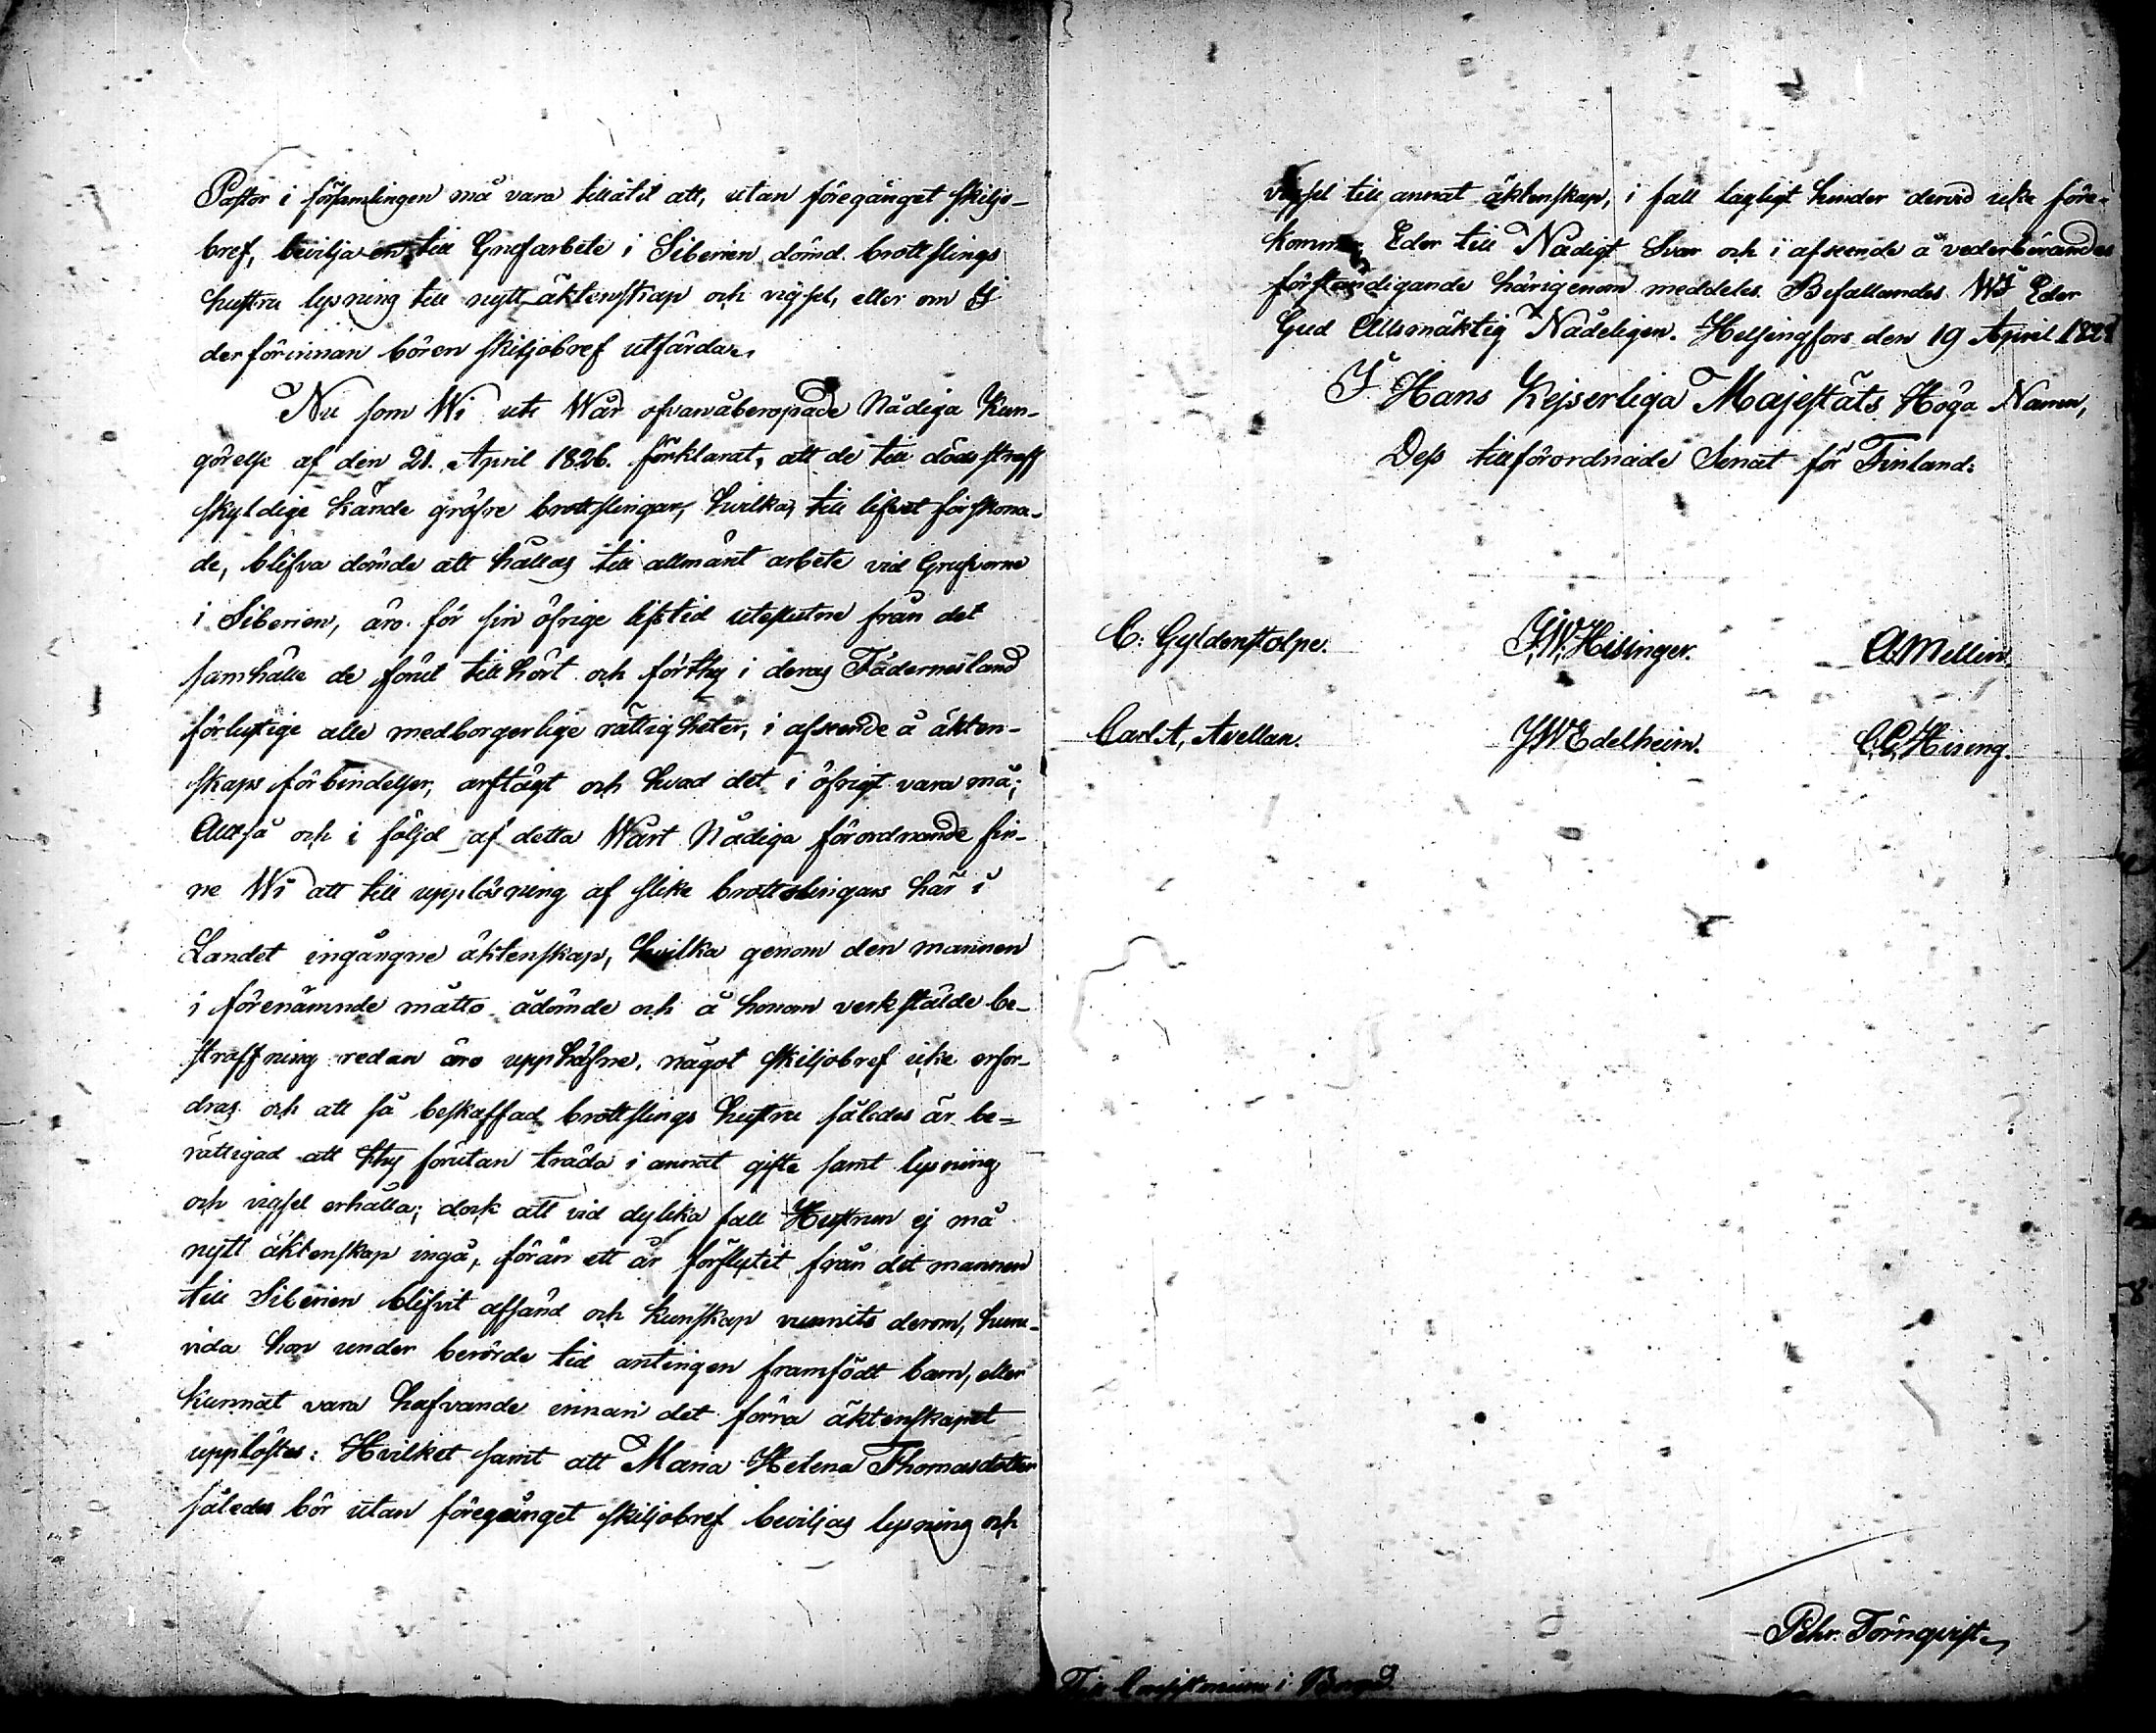 Pastor i församlingen må vara tillåtit att, utan föregånget skiljo-
bref, bevilja en till Grufarbete i Siberien dömd brottslings
hustru lysning till nytt äktenskap och vigsel, eller om I
derförinnan bören skiljobref utfärda.
Nu som Wi uti Wår ofvanåberopade Nådiga Kun-
görelse af den 21. April 1826. förklarat, att de till döds straff
skyldige kände gröfre brottslingar, hvilka, till lifvet förskona-
de, blifva dömde att hållas till allmänt arbete vid Grufvorne
i Siberien, äro för sin öfrige lifstid uteslutne från det
samhälle de förut tillhört och förthy i deras Fädernesland
förlustige alle medborgerlige rättigheter, i afseende å äkten-
skaps förbindelser, arfsrätt och hvad det i öfrigt vara må;
Alltså och i följd af detta Wårt Nådiga förordnande fin-
ne Wi att till upplösning af slike brottslingars här i
Landet ingångne äktenskap, hvilka genom den mannen
i förenämnde måtto ådömde och å honom verkstälde be-
straffning redan äro upphäfne, något skiljobref icke erfor-
dras och att så beskaffad brottslings hustru således är be-
rättigad att thy förutan träda i annat gifte samt lysning
och vigsel erhålla; dock att vid dylika fall Hustrun ej må
nytt äktenskap ingå, förän ett år förflutit från det mannen
till Siberien blifvit affänd och kunskap vunnits derom, huru-
vida hon under berörde tid antingen framfödt barn, eller
kunnat vara hafvande innan det förra äktenskapet
upplöstes: Hvilket samt att Maria Helena Thomasdotter
således bör utan föregånget skiljobref beviljas lysning och
vigsel till annat äktenskap, i fall lagligt hinder dervid icke före-
kommer, Eder till Nådigt Svar och i afseende å vederbörandes
förständigande härigenom meddeles. Befallandes Wi Eder
Gud Allsmäktig Nådeligen. Helsingfors den 19 April
I Hans Kejserliga Majestäts Höga Namn,
Dess tillförordnade Senat för Finland:
C: Gyldenstolpe. J,W, Hisinger. A: Mellin.
Carl A, Avellan. J W Edelheim. C. E. Hising.
Pehr Törnqvist
Till Consistorium i Borgå